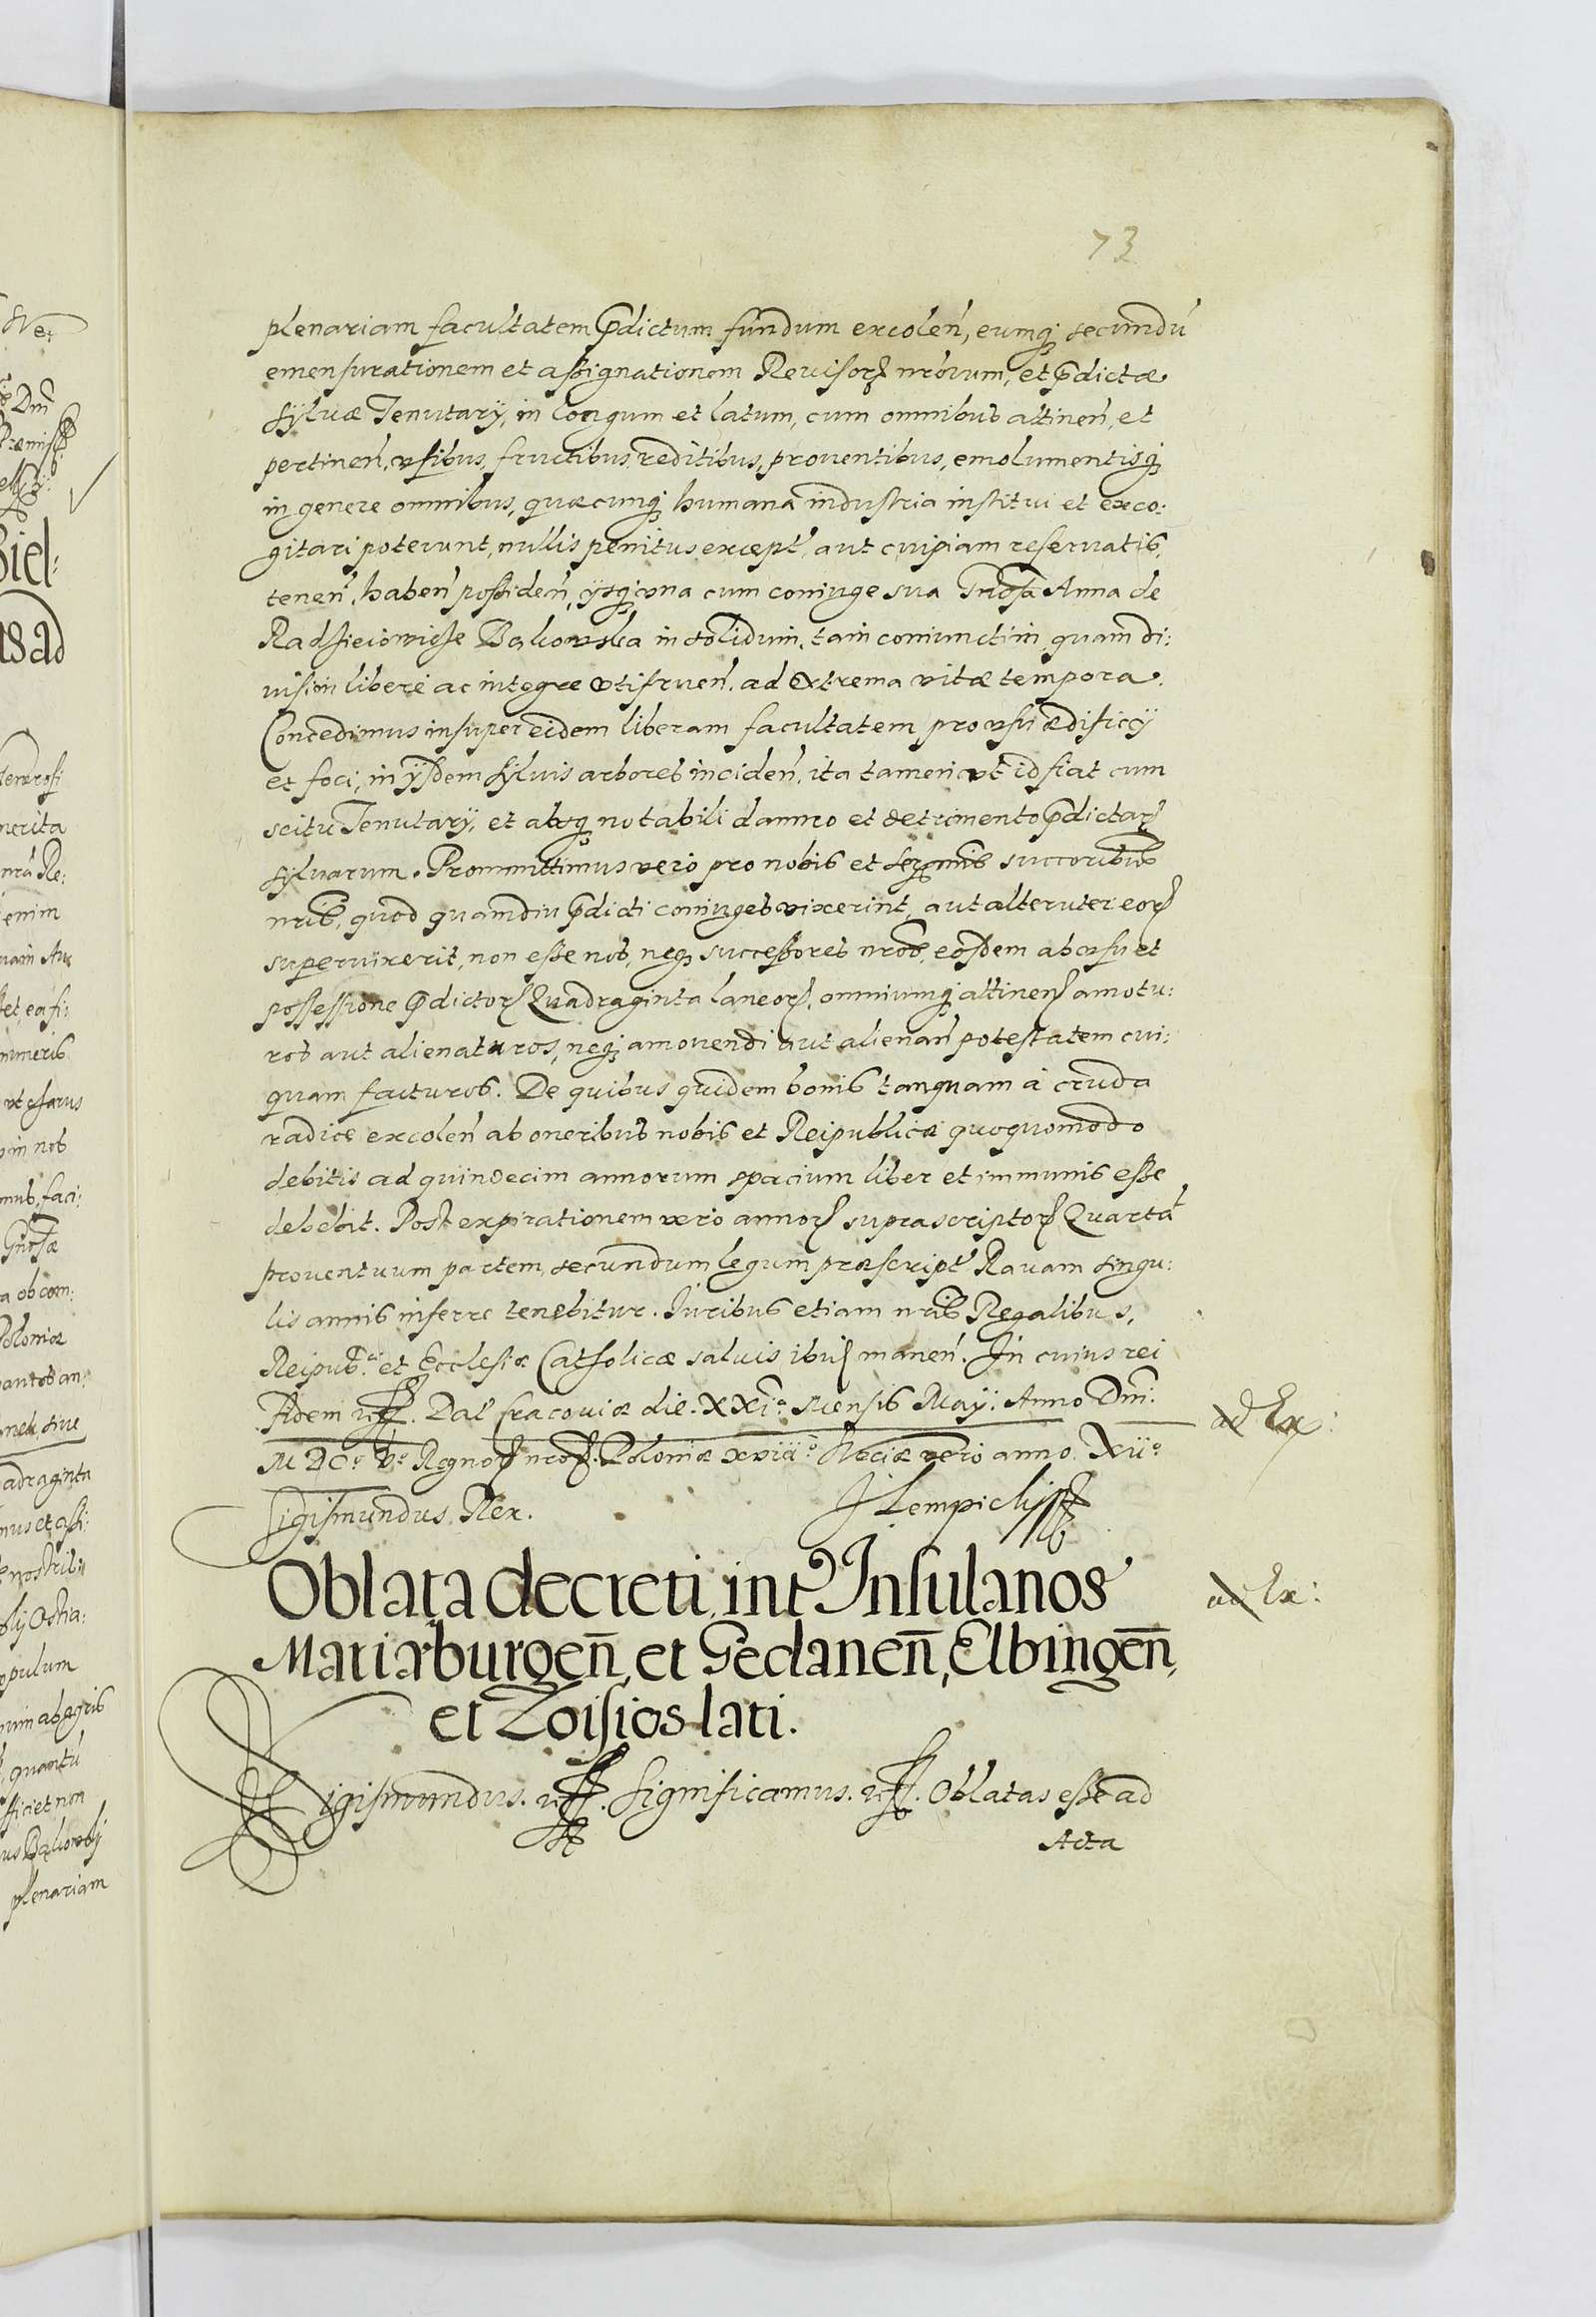 73
plenariam facultatem p̄dictum fundum excolen̄, eumq₃ secundū
emensurationem et assignationem Reuisorꝝ nr̄orum, et p̄dictæ
syluæ Tenutarÿ, in longum et latum, cum omnibus attinen̄, et
pertinen̄, vsibus, fructibus, reditibus, prouentibus, emolumentisq₃
in genere omnibus, quæcunq₃ humana industria institui et exco:
gitari poterunt, nullis penitus except̃, aut cuipiam reseruatis,
tenen̄, haben̄ possiden̄, ÿsq₃ vna cum coniuge sua Gn̄osa Anna de
Radsieiowicze Bąkowska in solidum, tam coniunctim, quam di:
uisim libere ac integre vtifruen̄. ad extrema vitæ tempora.
Concedimus insuper eidem liberam facultatem pro vsu ædificÿ
et foci, in ÿsdem syluis arbores inciden̄, ita tamen vt id fiat cum
scitu Tenutarÿ, et absq₃ notabili damno et detrimento p̄dictarꝝ
syluarum. Prommittimus vero pro nobis et Ser̄mis succoribus
nr̄is, quod quamdiu p̄dicti coniuges vixerint, aut alteruter eorꝝ
superuixerit, non esse nos, neq₃ successores nr̄os, eosdem ab vsu et
possessione p̄dictorꝝ Quadraginta laneorꝝ, omniumq₃ attinen̄ amotu:
ros aut alienaturos, neq₃ amouendi aut alienan̄ potestatem cui:
quam facturos. De quibus quidem bonis tanquam à cruda
radice excolen̄ ab oneribus nobis et Reipublicæ quoquomodo
debitis ad quindecim annorum spacium liber et immunis esse
debebit. Post expirationem vero annorꝝ suprascriptorꝝ Quartā
prouentuum partem, secundum legum præscript̃ Rauam singu:
lis annis inferre tenebitur. Iuribus etiam nr̄is Regalibus,
Reipub.cæ et Ecclesiæ Catholicæ saluis ibidem manen̄. In cuius rei
fidem etc. Dat̃ Cracouiæ die. XXIa. Mensis Maÿ. Anno Dn̄i.
M DCo. Vo. Regnorꝝ nr̄orꝝ. Poloniæ xviiio Sueciæ vero anno. XIIo
ad Ex:
Sigismundus Rex.
J Lempickÿ
Oblata decreti int̃ Insulanos
ad Ex:
Mariæburgen̄, et Gedanen̄, Elbingen̄,
et Loisios lati.
Sigismundus. etc. Significamus. etc. Oblatas esse ad
Acta